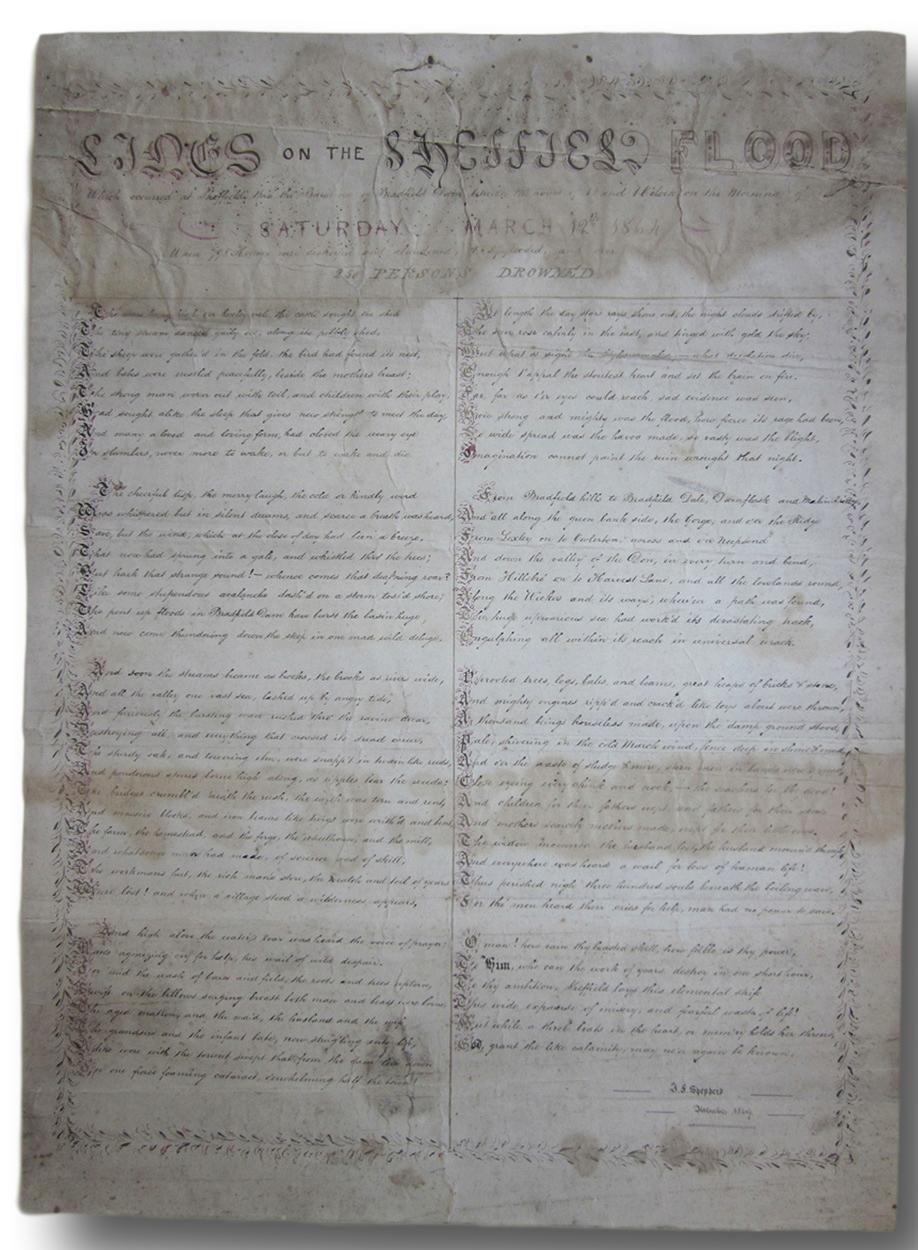 LINES ON THE SHEFFIELD FLOOD
Which occurred at Sheffield, thro' the Bursting of Bradfield Dam, 12 and 1 O'clock on the Morning of
SATURDAY MARCH 12th 1864
When 798 Houses were destroyed and abandoned, flooded, and
250 PERSONS DROWNED
the cattle sought the shed
The tiny stream danced gaily on, along its pebbly bed,
The sheep were gather'd in the fold, the bird had found its nest,
And babes were nestled peacefully, beside the mothers breast:
The strong man worn out with toil, and children with their play,
Had sought alike the sleep that gives new strength to meet the day,
And many a loved and loving form, had closed the weary eye
In slumbers, never more to wake, or but to wake and die
The cheerful lisp, the merry laugh, the cold or kindly word
Was whispered but in silent dreams, and scarce a breath was heard,
Save, but the wind, which at the close of day had lien a breeze,
But hark that strange sound!— whence comes that deaf'ning roar?
Like some stupendous avalanche dash'd on a storm toss'd shore;
The pent up floods in Bradfield Dam have burst the basin huge,
And now come thundering down the steep in one mad wild deluge.
And soon the streams became as brooks, the brooks as rivers wide,
And all the valley one vast sea, lashed up by angry tide;
And furiously the bursting mass rushed thro' the ravine drear,
Destroying all, and everything that crossed its dread career,
The sturdy oak, and towering elm, were snapp'd in twain like reeds,
And ponderous stones borne high along, as ripples bear the weeds;
The bridges crumbl'd 'neath the rush, the earth was torn and rent,
And massive blocks, and iron beams like twigs were writh'd and bent,
The farm, the homestead, and the forge, the wheelhouse, and the mill,
And whatsoever man had made, of science and of skill;
The workmans last, the rich man's store, the wealth and toil of years
Were lost! and where a village stood a wilderness appears,
And high above the waters roar was heard the voice of prayer,
The agonizing cry for help, the wail of wild despair.
The aged matron, and the maid, the husband and the wife
The grandsire and the infant babe, now struggling
In one fierce foaming cataract, o'erwhelming half the town!
At length the day star's rays shone out, the night clouds drifted by,
The sun rose calmly in the east, and tinged with gold the sky
But what a sight — what desolation dire,
Enough t'appal the stoutest heart and set the brain on fire.
Far, far as e'er eyes could reach, sad evidence was seen,
How strong and mighty was the flood, how fierce its rage had been,
So wide spread was the havoc made, so vasty was the blight,
Imagination cannot paint the ruin wrought that night.
From Bradfield hills to Bradfield Dale, Damflask and
And all along the green bank side, the Gorge, and o'er the Ridge
From Loxley on to Owlerton, across and o'er Neepsend
And down the valley of the Don, in every turn and bend,
From Hillsbro' on to Harvest Lane, and all the lowlands round,
Along the Wicker and its ways, where'er a path was found,
The huge uproarious sea had work'd its devastating track,
Engulphing all within its reach in universal wrack.
Uprooted trees, logs, bales, and beams, great heaps of bricks & stones,
And mighty engines ripp'd and crack'd like toys about were thrown,
A thousand beings houseless made, upon the damp ground stood,
Pale, shivering in the cold March wind, knee deep in slime & mud,
And o'er the waste of sludge & mire, stern men
Close eyeing every chink and nook,— the searchers for the dead!
And children for their fathers wept, and fathers for their sons
And mothers scarcely mothers made, wept for their little ones,
The widow mourn'd the husband lost, the husband mourn'd
And everywhere was heard a wail for loss of human life!
Thus perished nigh three hundred souls beneath the boiling wave,
For tho' men heard their cries for help, man had no power to save.
O man! how vain thy boasted skill, how little is thy power,
To Him, who can the work of years destroy in one short hour,
To thy ambition, Sheffield lays this elemental strife
This wide expanse of misery, and fearful waste of life!
But while a throb beats in the heart, or mem'ry holds her throne,
God, grant the like calamity, may ne'er again be known.
J. S. Shepherd